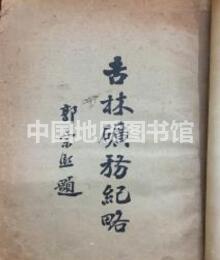 吉林礦務紀略
郭宗熙題
中国地图书馆